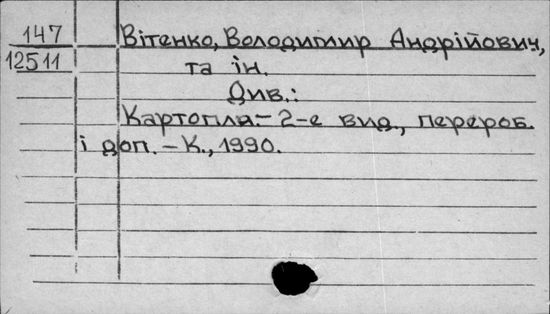 147 Вітенко, Володимир Андрійович,
12511 та ін.
Див.:
Картопля.- 2-е вид., перероб.
і доп. - К., 1990.